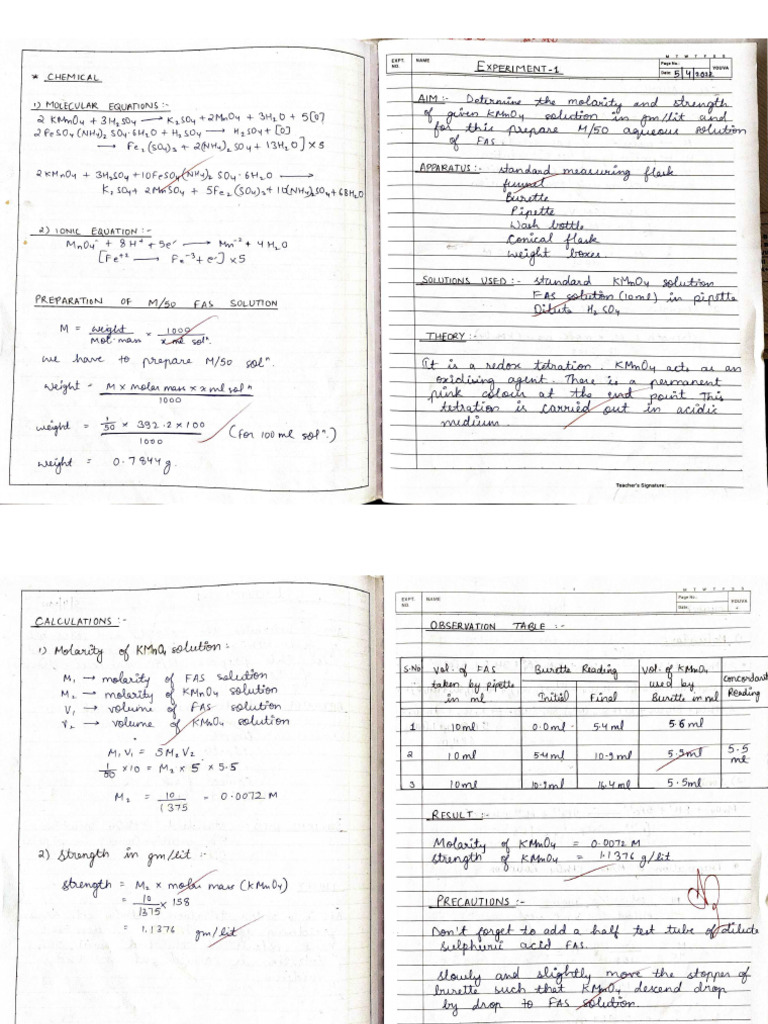 * CHEMICAL
1) MOLECULAR EQUATIONS :-
2 KMnO4 + 3H2SO4 → K2SO4 + 2MnO4 + 3H2O + 5[O]
2 FeSO4(NH4)2 SO4·6H2O + H2SO4 → H2SO4 + [O]
→ Fe2(SO4)3 + 2(NH4)2SO4 + 13H2O] x 5
2KMnO4 + 3H2SO4 + 10FeSO4(NH4)2 SO4·6H2O →
K2SO4 + 2MnSO4 + 5Fe2(SO4)3 + 10(NH4)2SO4 + 68H2O
2) IONIC EQUATION :-
MnO4- + 8H+ + 5e- → Mn-2 + 4H2O
[Fe+2 → Fe-3 + e-] x 5
PREPARATION OF M/50 FAS SOLUTION
M = weight / Mol. mass x 1000 / x ml soln.
we have to prepare M/50 soln.
weight = M x molar mass x x ml soln / 1000
weight = 1/50 x 392.2 x 100 / 1000 (for 100 ml soln.)
weight = 0.7844 g.
EXPT. NO.
NAME
M T W T F S S
Page No.:
Date: 5 4 2022
YOUVA
EXPERIMENT-1
AIM :- Determine the molarity and strength
of given KMnO4 solution in gm/lit and
for this prepare M/50 aqueous solution
of FAS.
APPARATUS :- standard measuring flask
funnel
Burette
Pipette
Wash bottle
Conical flask
weight boxes.
SOLUTIONS USED :- standard KMnO4 solution
FAS solution (10ml) in pipette
Dilute H2SO4
THEORY :-
It is a redox tetration. KMnO4 acts as an
oxidising agent. There is a permanent
pink colour at the end point. This
tetration is carried out in acidic
medium.
Teacher's Signature:
CALCULATIONS :-
1) Molarity of KMnO4 solution :
M1 → molarity of FAS solution
M2 → molarity of KMnO4 solution
V1 → volume of FAS solution
V2 → volume of KMnO4 solution
M1V1 = 5M2V2
1/50 x 10 = M2 x 5 x 5.5
M2 = 10/1375 = 0.0072 M
2) Strength in gm/lit :-
strength = M2 x molar mass (KMnO4)
= 10/1375 x 158
= 1.1376 gm/lit
EXPT. NO.
NAME
M T W T F S S
Page No.:
Date:
YOUVA
OBSERVATION TABLE :-
S.No Vol. of FAS taken by pipette in ml Burette Reading Initial Final Vol. of KMnO4 used by Burette in ml Concordant Reading
1 10ml 0.0ml 5.4ml 5.6 ml
2 10ml 5.4ml 10.9ml 5.5ml 5.5 ml
3 10ml 10.9ml 16.4ml 5.5ml
RESULT :-
Molarity of KMnO4 = 0.0072 M
strength of KMnO4 = 1.1376 g/lit
PRECAUTIONS :-
Don't forget to add a half test tube of dilute
sulphuric acid FAS.
slowly and slightly move the stopper of
burette such that KMnO4 descend drop
by drop to FAS solution.